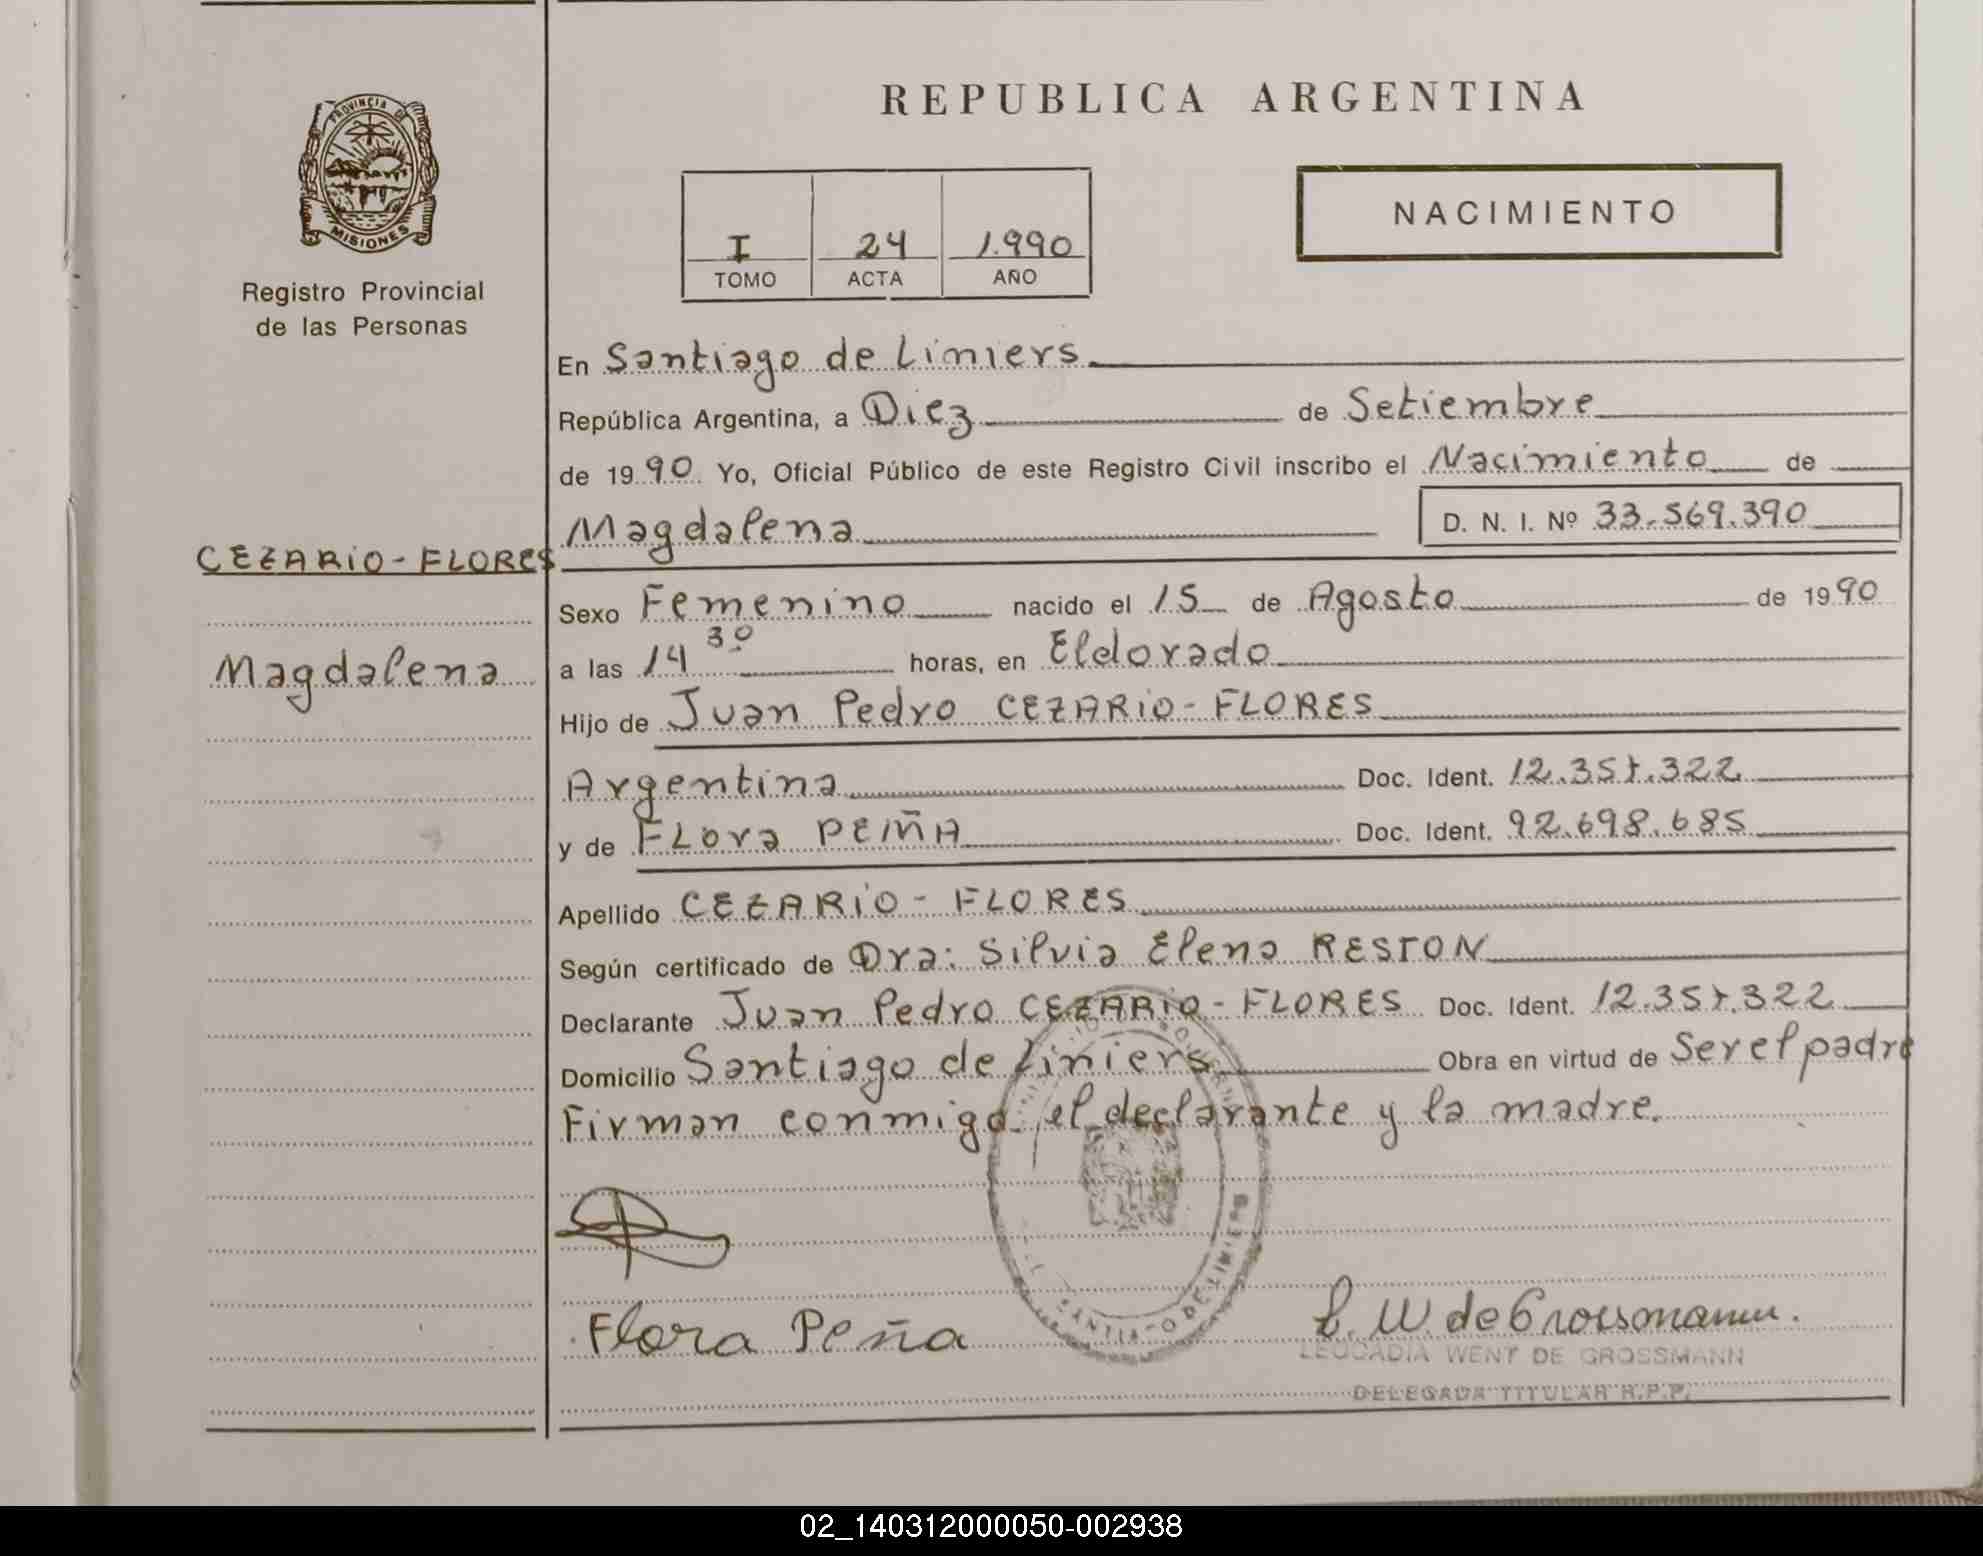 REPUBLICA ARGENTINA
PROVINCIA DE
MISIONES
Registro Provincial
de las Personas
I 24 1.990
TOMO ACTA AÑO
NACIMIENTO
En Santiago de Liniers
República Argentina, a Diez de Setiembre
de 1990 Yo, Oficial Público de este Registro Civil inscribo el Nacimiento de
Magdalena D. N. I. Nº 33.569.390
CEZARIO - FLORES
Sexo Femenino nacido el 15 de Agosto de 1990
Magdalena
a las 14 30 horas, en Eldorado
Hijo de Juan Pedro CEZARIO - FLORES
Argentina Doc. Ident. 12.357.322
y de FLora PEÑA Doc. Ident. 92.698.685
Apellido CEZARIO - FLORES
Según certificado de Dra: Silvia Elena RESTON
Declarante Juan Pedro CEZARIO - FLORES Doc. Ident. 12.357.322
Domicilio Santiago de Liniers Obra en virtud de Ser el padre
Firman conmigo el declarante y la madre.
Flora Peña
L. W. de Grossmann.
LEOCADIA WENT DE GROSSMANN
DELEGADA TITULAR R.P.P.
02_140312000050-002938